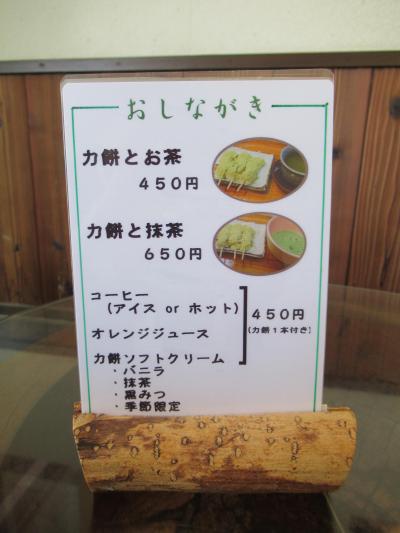 おしながき
力餅とお茶
450円
力餅と抹茶
650円
コーヒー
(アイス or ホット)
オレンジジュース
450円
(力餅1本付き)
力餅ソフトクリーム
・バニラ
・抹茶
・黒みつ
・季節限定